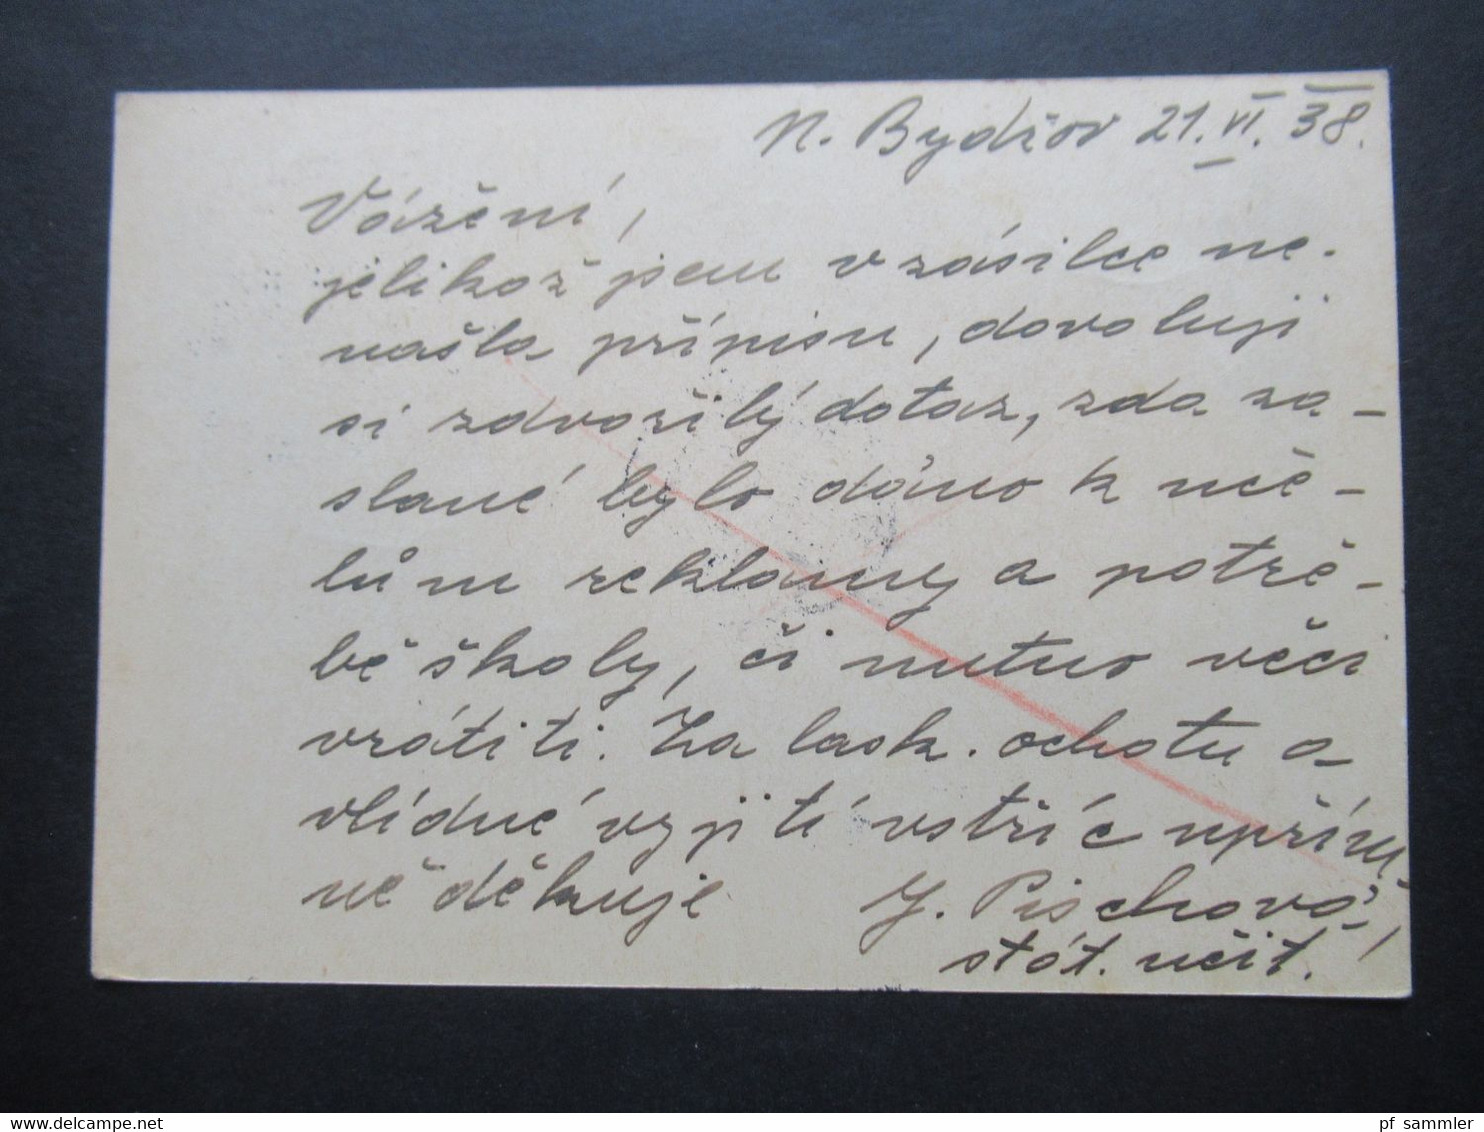 N. Bydžov 21.VI.38.
Vážení,
jelikož jsem v zásilce ne-
našla přípisu, dovoluji
si zdvořilý dotaz, zda za-
slané bylo dáno k úče-
lům reklamy a potře-
bě školy, či nutno věci
vrátiti. Za lask. ochotu a
vlídné vyjití vstříc upřím-
ně děkuje J. Pischová,
stát. učit.
DELCAMPE.NET
pf_sammler